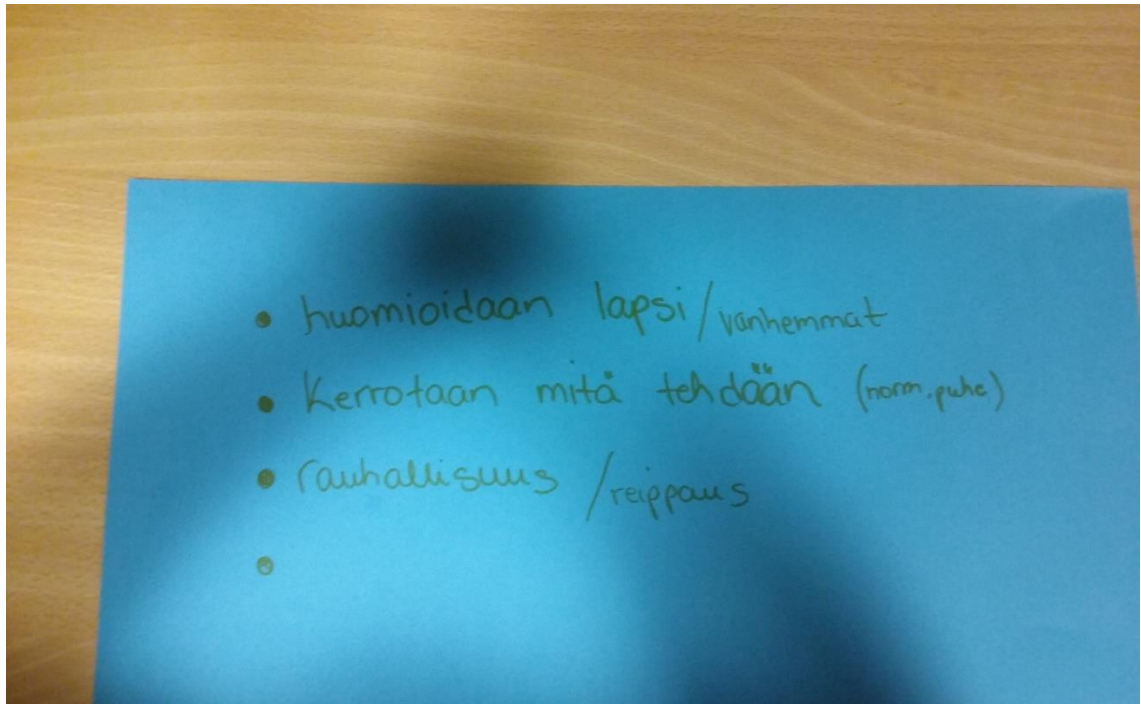 • huomioidaan lapsi/vanhemmat
• Kerrotaan mitä tehdään (norm.puhe)
• rauhallisuus /reippaus
•